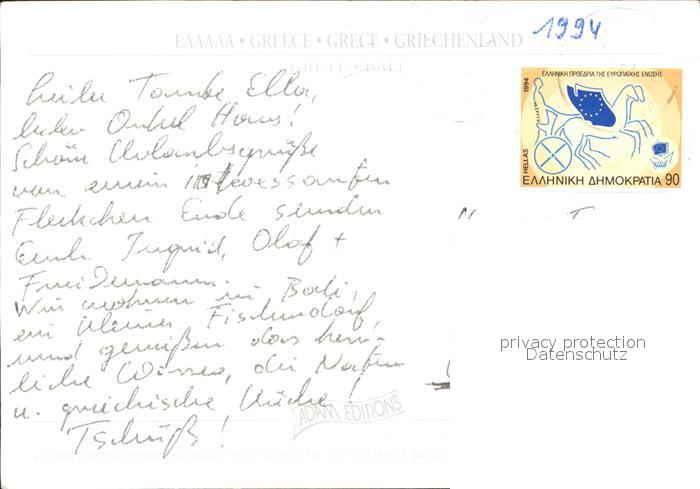 1994
ΕΛΛΑΔΑ • GREECE • GRECE • GRIECHENLAND
CRETE • BALI
Liebe Tante Ella,
lieber Onkel Hans!
Schöne Urlaubsgrüße
von einem interessanten
Fleckchen Erde senden
Euch Ingrid, Olaf +
Friedemann.
Wir wohnen in Bali,
ein kleines Fischerdorf
und genießen das herr-
liche Wasser, die Natur
u. griechische Küche!
Tschüß!
ΕΛΛΗΝΙΚΗ ΠΡΟΕΔΡΙΑ ΤΗΣ ΕΥΡΩΠΑΪΚΗΣ ΕΝΩΣΗΣ
1994
HELLAS
ΕΛΛΗΝΙΚΗ ΔΗΜΟΚΡΑΤΙΑ 90
privacy protection
Datenschutz
ADAM EDITIONS
ADAM EDITIONS 275 MESOGION AVE. 152 31 ATHENS TEL. (01)